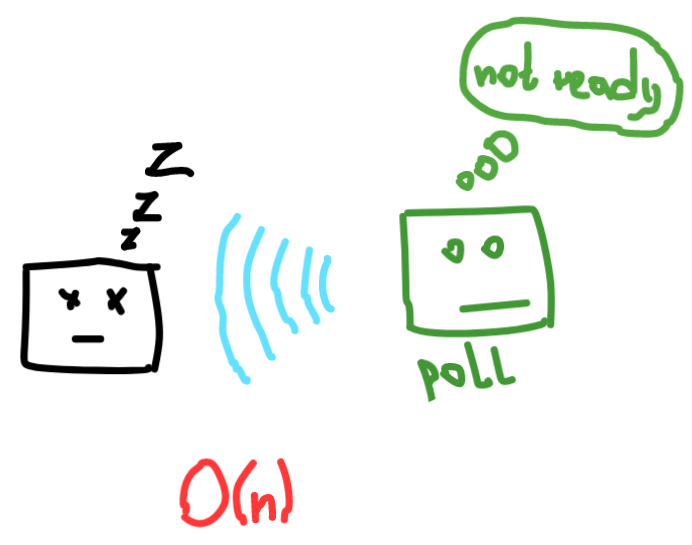 not ready
z
z
z
poll
O(n)